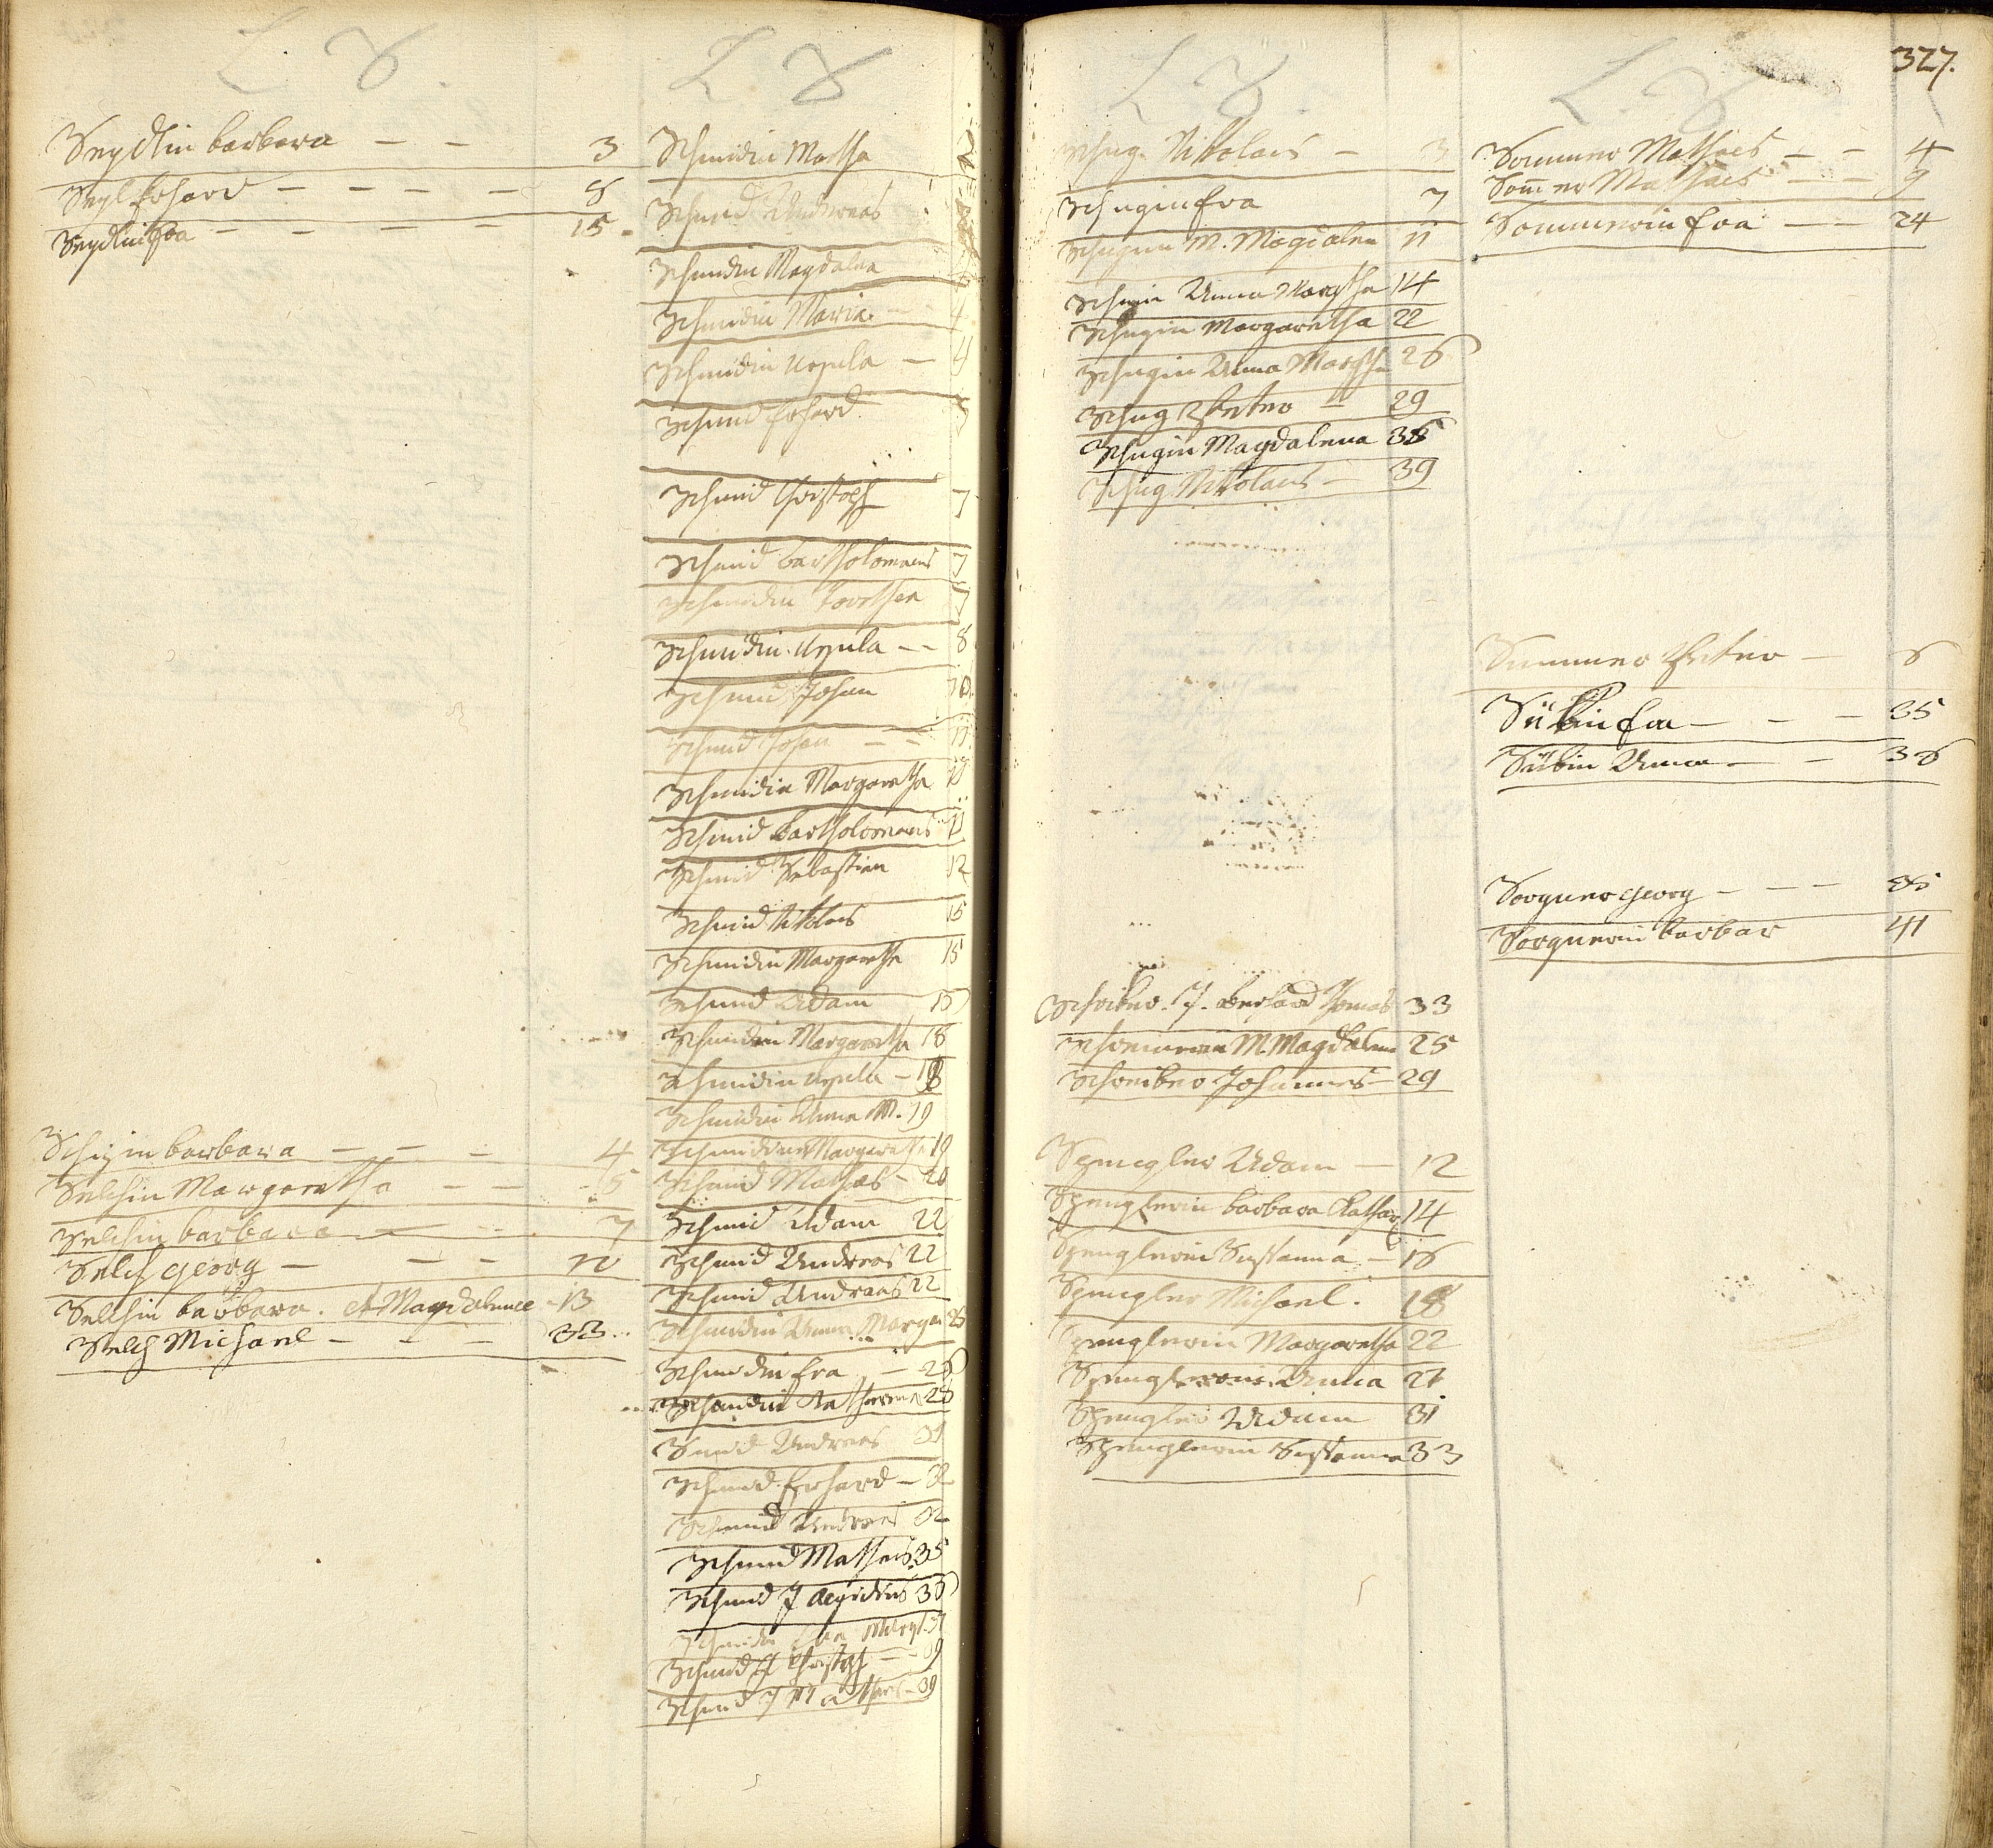 L. S.
Seydlin barbara — — 3
Seyl Erhard — — — — — 8
Seydlin Eva — — — — — 15
Schizin barbara — — — 4
Selchin Margaretha — — 5
Selchin barbara — — 7
Selch Georg — — — — 10
Selchin barbara. et Magdalenae 13
Selch Michael — — — 33
L S
Schmidin Martha
Schmid Andreas
Schmidin Magdalena
Schmidin Maria 4
Schmidin Ursula — 4
Schmid Erhard
Schmid Christoph 7
Schmid bartholomaeus 7
Schmidin Dorothea 7
Schmidin Ursula — — 8
Schmid Johan 10
Schmid Johan — — 11
Schmidin Margaretha 11
Schmid bartholomaeus 11
Schmid Sebastian 12
Schmid Nikolaus 15
Schmidin Margaretha 15
Schmid Adam 15
Schmidin Margaretha 18
Schmidin Ursula — 18
Schmidin Anna M. 19
Schmidin Margaretha 19
Schmid Mathaes — 20
Schmid Adam 22
Schmid Andreas 22
Schmid Andreas 22
Schmidin Anna Marga 25
Schmidin Eva — 26
Schmidin Katharina 28
Smid Andreas 31
Schmid Erhard — 32
Schmid Andreas 32
Schmid Mathaeus 35
Schmid J Aegidius 36
Schmidin Eva
Schmid J Christoph — — 39
Schmid J Mathaes — 39
L S.
Schug Nikolaus — 3
Schugin Eva 7
Schugin M. Magdalen 11
Schugin Anna Margtha 14
Schugin Margaretha 22
Schugin Anna Margtha 26
Schug Peter — 29
Schugin Magdalena 36
Schug Nikolaus — 39
Schreiber J. Thomas 33
M. Magdalena 25
Schreiber Johannes — 29
Spengler Adam — 12
Spenglerin barbara Kathar 14
Spenglerin Sussanna — 16
Spengler Michael. 18
Spenglerin Margaretha 22
Spenglerin Anna 27
Spengler Adam 31
Spenglerin Sussanna 33
327.
L. S.
Sommer Mathaes — — 4
Som̅er Mathaes — — 9
Sommerin Eva — — 24
Summer Peter — 6
Sübin Eva — — — 35
Sübin Anna — — 36
Sorgner Georg — — — 36
Sorgnerin barbar 41